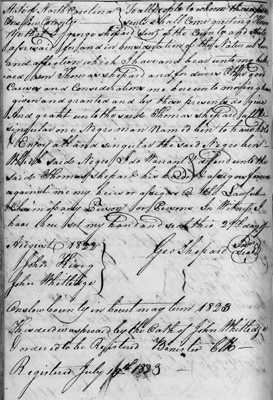 State of North Carolina } To all people to whom these
Onslow County } presents shall Come greeting
that I George Shepard Senr of the County and State
aforesaid for and in Consideration of the Natural love
and affection which I have and bear unto my
Son Thomas Shepard and for divers other good
Causes and Considerations me hereunto moving have
given and granted and by these presents do give
And grant unto the said Thomas Shepard
singular one Negro man Named Ben to have hold
& Enjoy all and singular the said Negro Ben
said Negro I do Warrant & Defend unto the
said Thomas Shepard his
against me my heirs or assigns & all
Claim of any Person or Persons In Witness I
have here set my hand and seal this 29th day of
August 1822 } Geo Shepard {Seal}
John King
John Whitledge
Onslow County in Court may term 1823
This deed was proved by the Oath of John Whitledge
& ordered to be Registered Banister Clk
Registered July 19th 1823